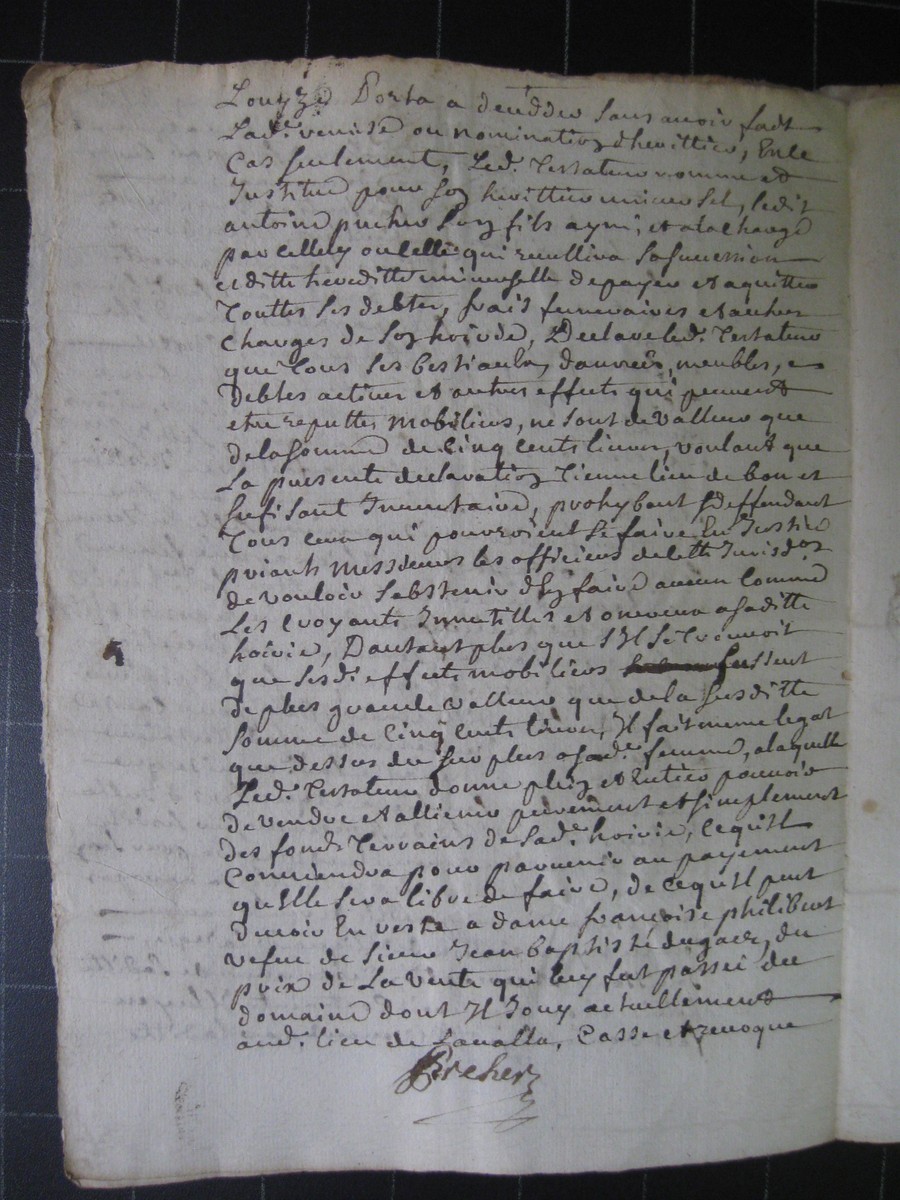 Louyze Porta a decedder sans avoir fait
Lade. remise ou nomination dherittier, En le
Cas seulement, Led. Testateur nomme et
Institue pour son herittier universel, ledit
antoine pucher son fils ayné, et a la charge
par celluy ou celle qui recullira sa succession
et ditte heredittè universelle de payer et aquitter
Touttes ses debtes, frais funeraires et autres
charges de son hoirde, Declare led. Testateur
que Tous ses bestiaulx, danrrées, meubles,
Debtes actives et autres effects qui peuvent
etre reputtes mobiliers, ne sont de valleur que
de la somme de Cinq Cents livres, voulant que
La presente declaration Tienne lieu de bon et
sufisant Inventaire, prohybant & deffendant
Tous ceux qui pourroient se faire En Justice
priants messieurs les officiers de lette Jurisdon
de vouloir sabstenir dEn faire aucun Comme
Les Croyants Innutilles et onereux a saditte
hoirie, Dautant plus que s'Il se Trouvoit
que sesdi effects mobiliers fussent
De plus grande valleur que de la susditte
somme de Cinq Cents livres, Il fait meme legat
que dessus du surplus a sade. femme, a laquelle
Led. Testateur donne plein et Entier pouvoir
de vendre et alliener purement et simplement
des fonds Terrains de sad. hoirie, ce qu'Il
Conviendra pour parvenir au payement
qu'Elle sera libre de faire, de ce qu'Il peut
devoir En reste a dame françoise philibert
vefue de sieur Jean baptiste dugaer, du
prix de La vente qui luy fut passée du
domaine dont Il Jouy actuellement
aud. lieu de Lavalla, Casse et revoque
Pircher